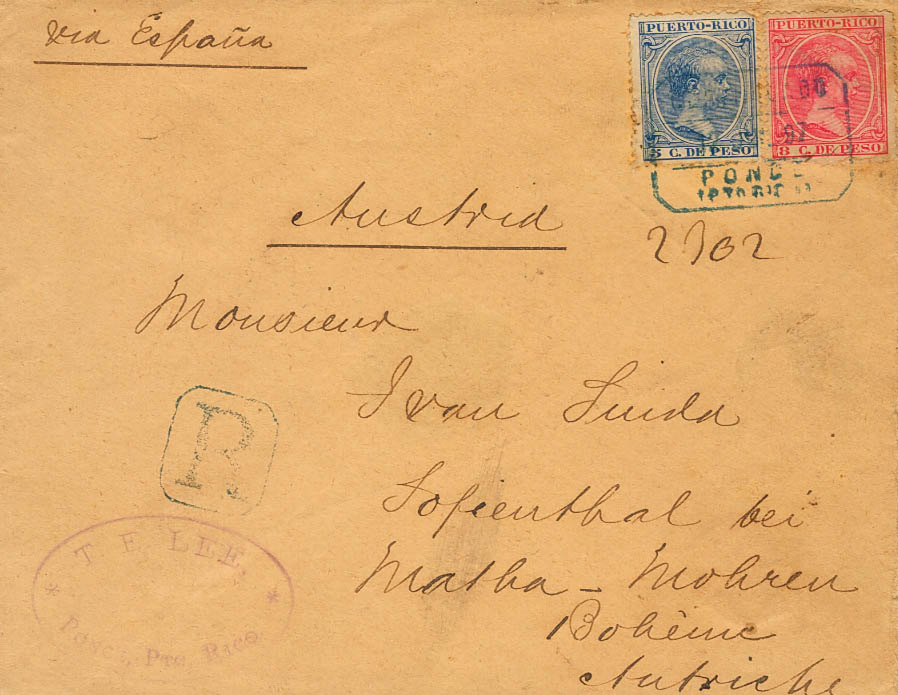 via España
PUERTO-RICO
5 C. DE PESO
PUERTO-RICO
8 C. DE PESO
97
PONCE
Austria
2702
Monsieur
Ivan
Sofienthal bei
Matha - Mohren
Bohême
Autriche
R
T. E. LEE,
PONCE, PTO. RICO.